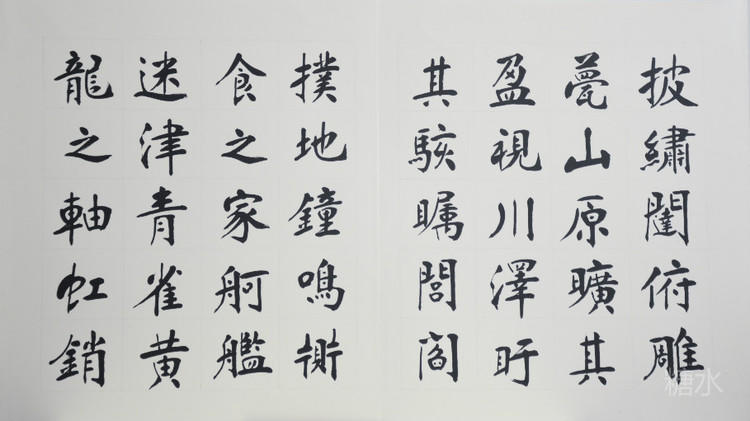 披繡闥俯雕
甍山原曠其
盈視川澤盱
其駭瞩閭閻
撲地鐘鳴鼎
食之家舸艦
迷津青雀黄
龍之軸虹銷
糖水